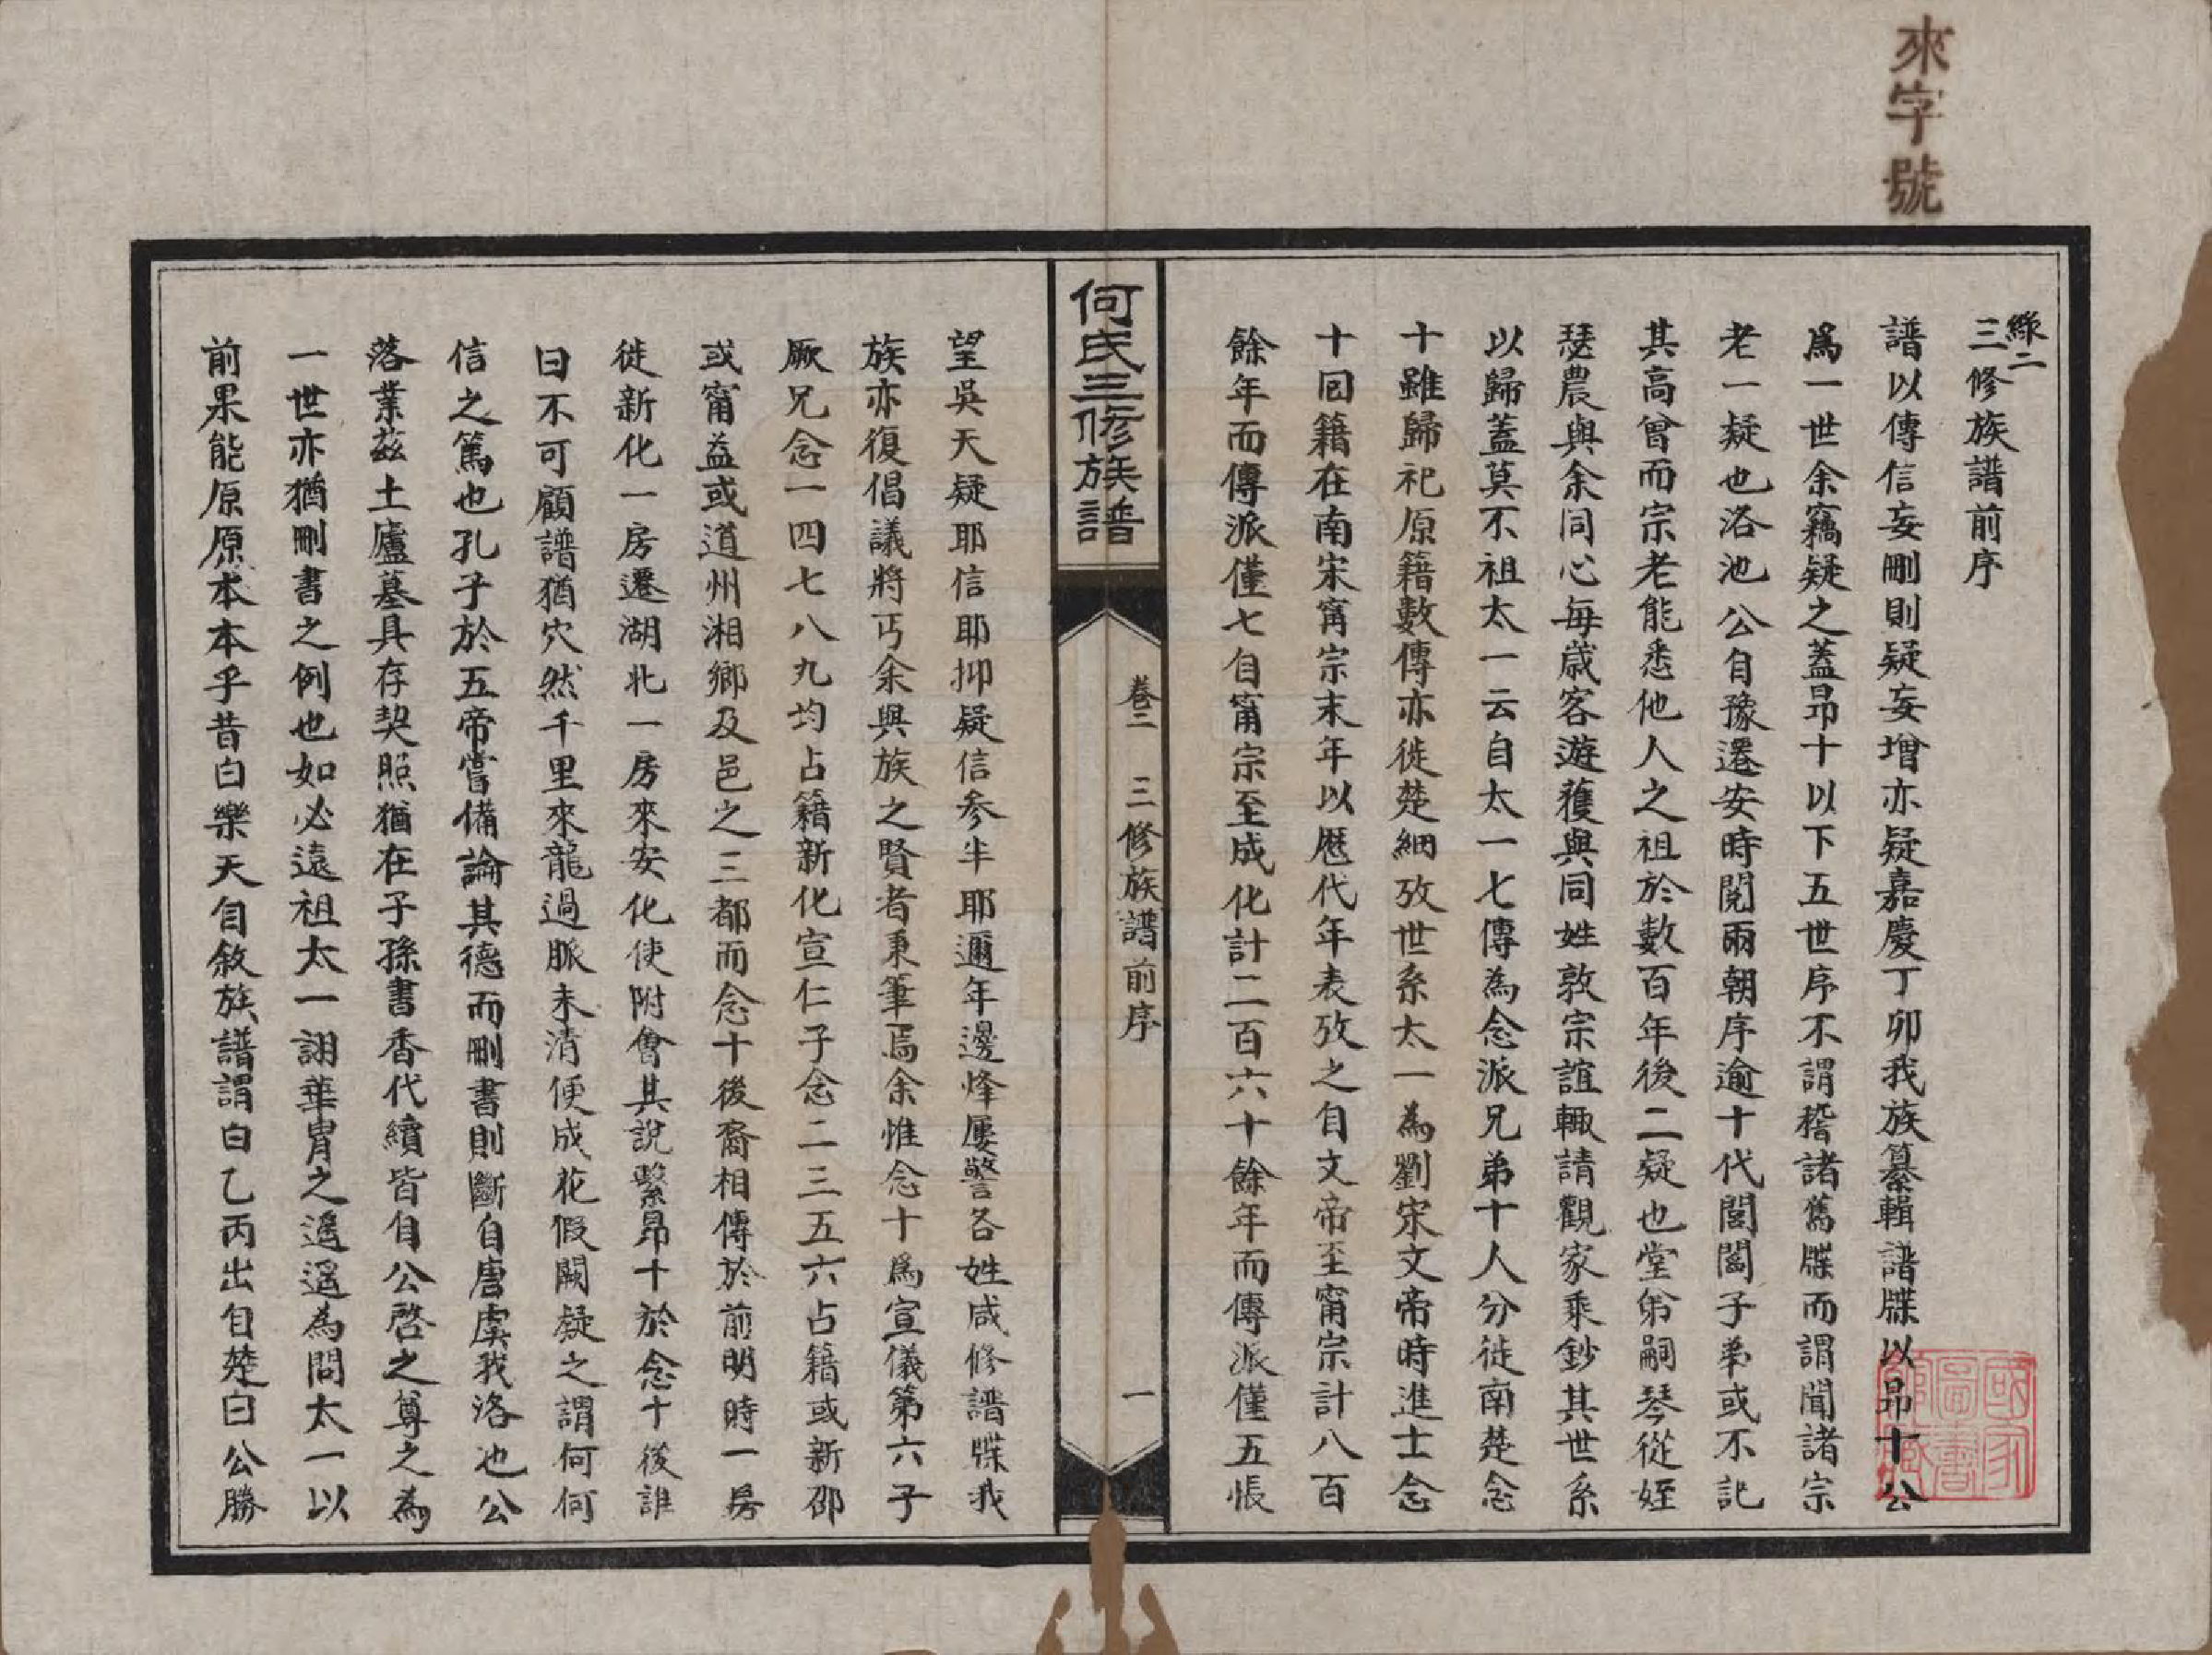 來字號
綠二
三修族譜前序
譜以傳信妄刪則疑妄增亦疑嘉慶丁卯我族纂輯譜牒以昂十公
爲一世余竊疑之蓋昂十以下五世序不謂稽諸舊牒而謂聞諸宗
老一疑也洛池公自豫遷安時閱兩朝序逾十代閤閤子弟或不記
其高曾而宗老能悉他人之祖於數百年後二疑也堂弟嗣琴從姪
瑟農與余同心每歲客遊獲與同姓敦宗誼輒請觀家乘鈔其世系
以歸蓋莫不祖太一云自太一七傳為念派兄弟十人分徙南楚念
十雖歸祀原籍數傳亦徙楚細攷世系太一為劉宋文帝時進士念
十回籍在南宋甯宗末年以歷代年表攷之自文帝至甯宗計八百
餘年而傳派僅七自甯宗至成化計二百六十餘年而傳派僅五悵
何氏三修族譜
卷二　三修族譜前序
一
望吳天疑耶信耶抑疑信参半耶邇年邊烽屢警各姓咸修譜牒我
族亦復倡議將丐余與族之賢者秉筆焉余惟念十爲宣儀第六子
厥兄念一四七八九均占籍新化宣仁子念二三五六占籍或新邵
或甯益或道州湘鄉及邑之三都而念十後裔相傳於前明時一房
徙新化一房遷湖北一房來安化使附會其說繫昂十於念十後誰
曰不可顧譜猶穴然千里來龍過脈未清便成花假闕疑之謂何何
信之篤也孔子於五帝嘗備論其德而刪書則斷自唐虞我洛池公
落業兹土廬墓具存契照猶在子孫書香代續皆自公啓之尊之為
一世亦猶刪書之例也如必遠祖太一詡華胄之遙遙為問太一以
前果能原原本本乎昔白樂天自敘族譜謂白乙丙出自楚白公勝
國家圖書館藏